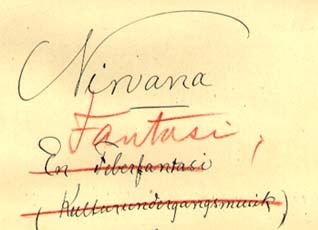 Nirvana
Fantasi,
En Feberfantasi
(Kulturundergangsmusik)